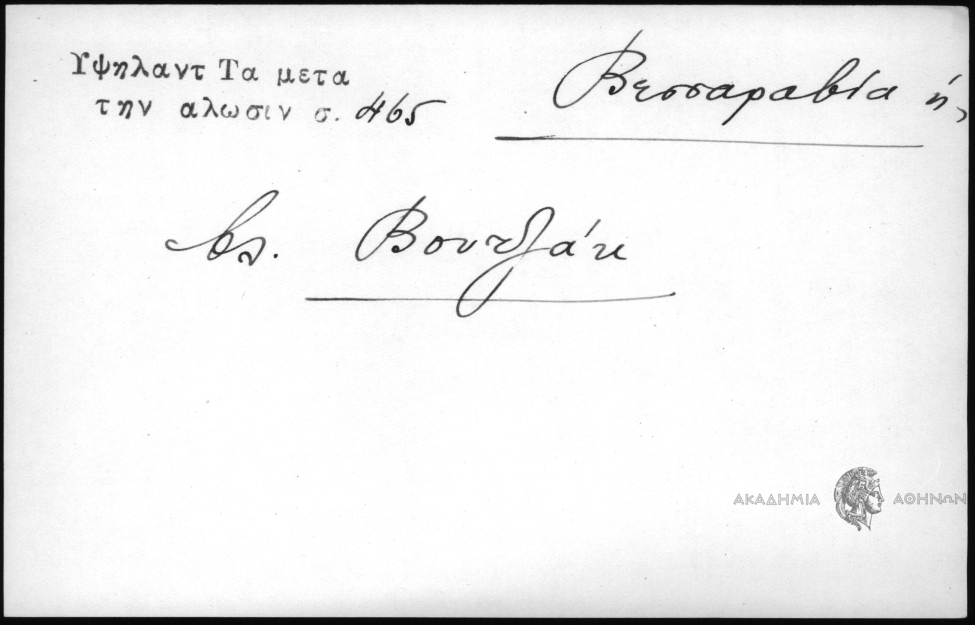 Υψηλαντ Τα μετα
την αλωσιν σ. 465
Βεσσαραβία ἡ,
βλ. Βουτζάκ
ΑΚΑΔΗΜΙΑ ΑΘΗΝΩΝ